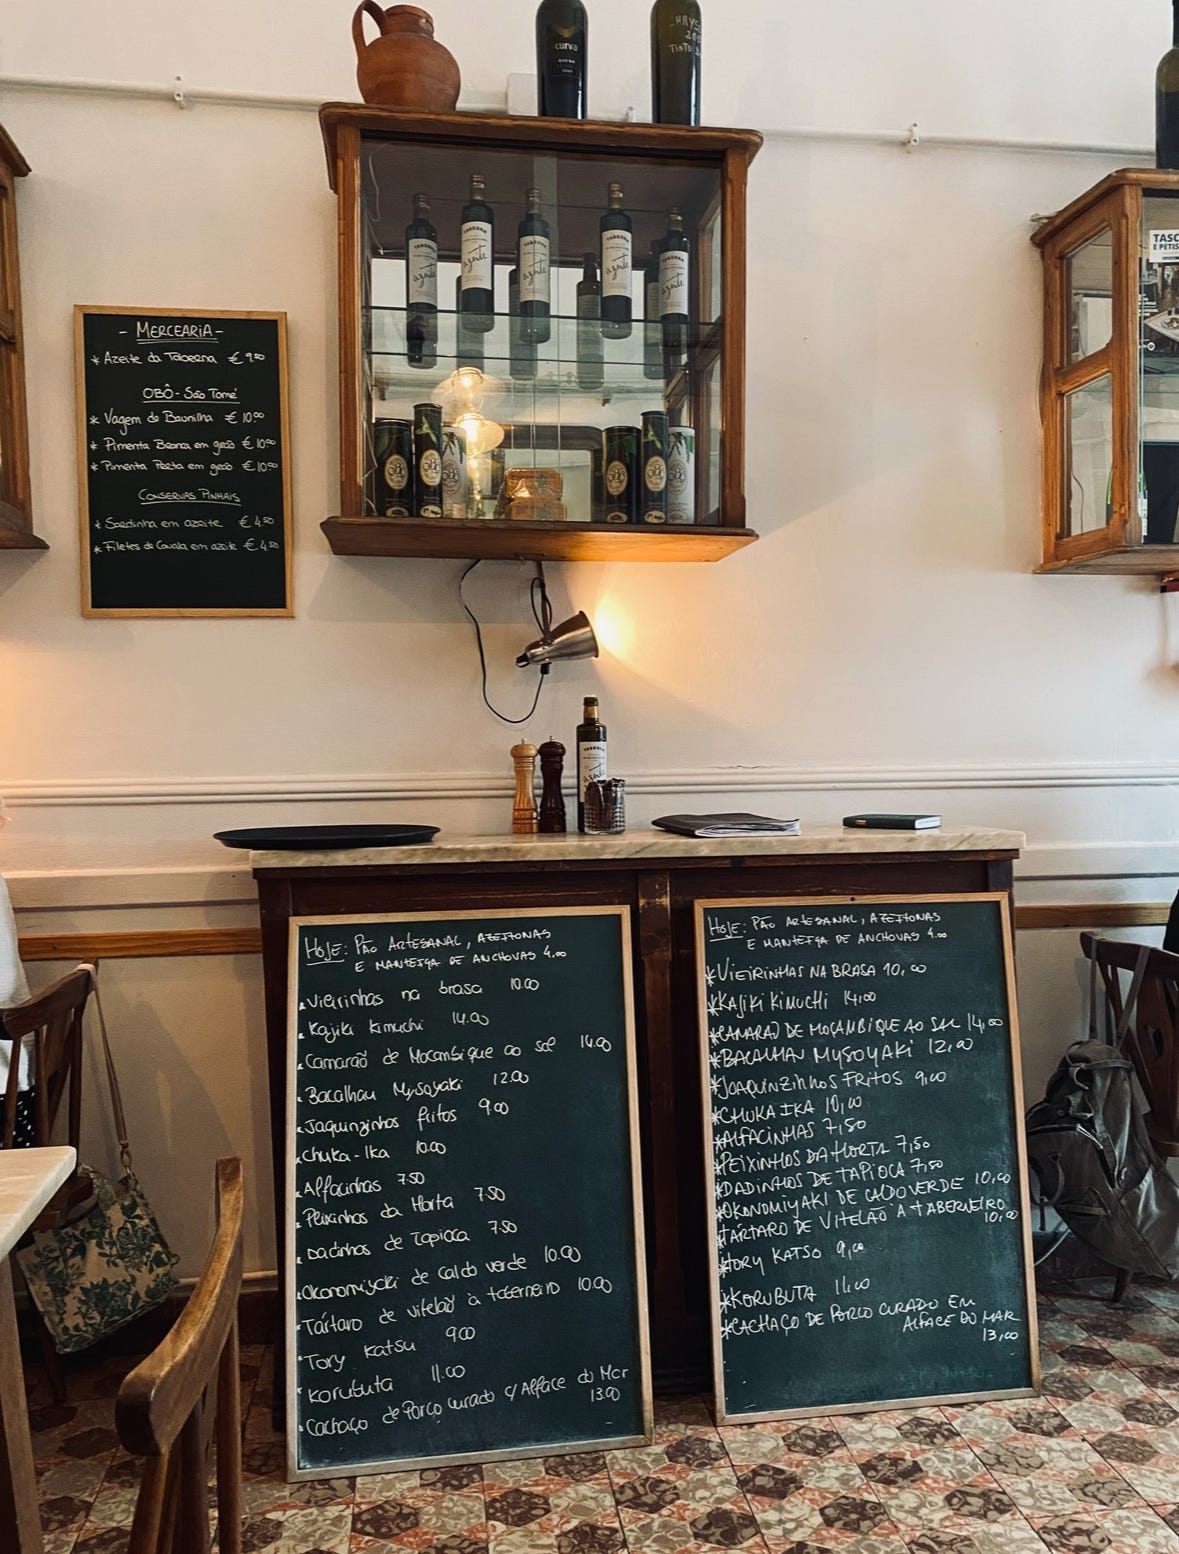 curva
HRYS
200
TINTO
TABERNA
azeite
TABERNA
azeite
TABERNA
azeite
TABERNA
azeite
TABERNA
azeite
TASC
E PETIS
- MERCEARIA -
* Azeite da Taberna € 9.50
OBÔ - São Tomé
* Vagem de Baunilha € 10.00
* Pimenta Branca em grão € 10.00
* Pimenta Preta em grão € 10.00
CONSERVAS PINHAIS
* Sardinha em azeite € 4.50
* Filetes de Cavala em azeite € 4.50
OBÔ
TABERNA
azeite
HOJE: PÃO ARTESANAL, AZEITONAS
E MANTEIGA DE ANCHOVAS 4.00
Vieirinhas na brasa 10.00
Kajiki Kimuchi 14.00
Camarão de Mocambique ao sal 14.00
Bacalhau Mysoyaki 12.00
Jaquinzinhos fritos 9.00
Chuka-Ika 10.00
Alfacinhas 7.50
Peixinhos da Horta 7.50
Dadinhos de Tapioca 7.50
Okonomiyaki de caldo verde 10.00
Tártaro de vitelão à taberneiro 10.00
Tory Katsu 9.00
Korubuta 11.00
Cachaço de Porco curado c/ Alface do Mar
13.00
HOJE: PÃO ARTESANAL, AZEITONAS
E MANTEIGA DE ANCHOVAS 4.00
*VIEIRINHAS NA BRASA 10,00
*KAJIKI KIMUCHI 14,00
*CAMARÃO DE MOÇAMBIQUE AO SAL 14,00
*BACALHAU MYSOYAKI 12,00
*JOAQUINZINHOS FRITOS 9,00
*CHUKA IKA 10,00
*ALFACINHAS 7,50
*PEIXINHOS DA HORTA 7,50
*DADINHOS DE TAPIOCA 7,50
*OKONOMIYAKI DE CALDO VERDE 10,00
*TÁRTARO DE VITELÃO À TABERNEIRO
10,00
*TORY KATSO 9,00
*KORUBUTA 11,00
*CACHAÇO DE PORCO CURADO EM
ALFACE DO MAR
13,00